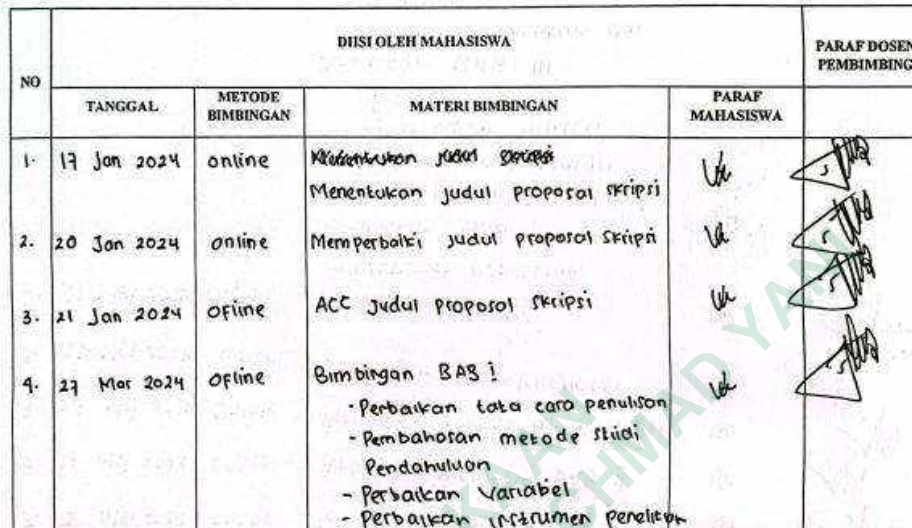 DIISI OLEH MAHASISWA
PARAF DOSEN
PEMBIMBING
NO
TANGGAL
METODE
BIMBINGAN
MATERI BIMBINGAN
PARAF
MAHASISWA
1. 17 Jan 2024 online judul
Menentukan judul proposal skripsi
2. 20 Jan 2024 online Memperbaiki judul proposal skripsi
3. 21 Jan 2024 Ofline ACC Judul Proposal skripsi
4. 27 Mar 2024 Ofline Bimbingan BAB I
- Perbaikan tata cara penulisan
- Pembahasan metode studi
Pendahuluan
- Perbaikan Variabel
- Perbaikan instrumen
KAAN
CHMAD YANI